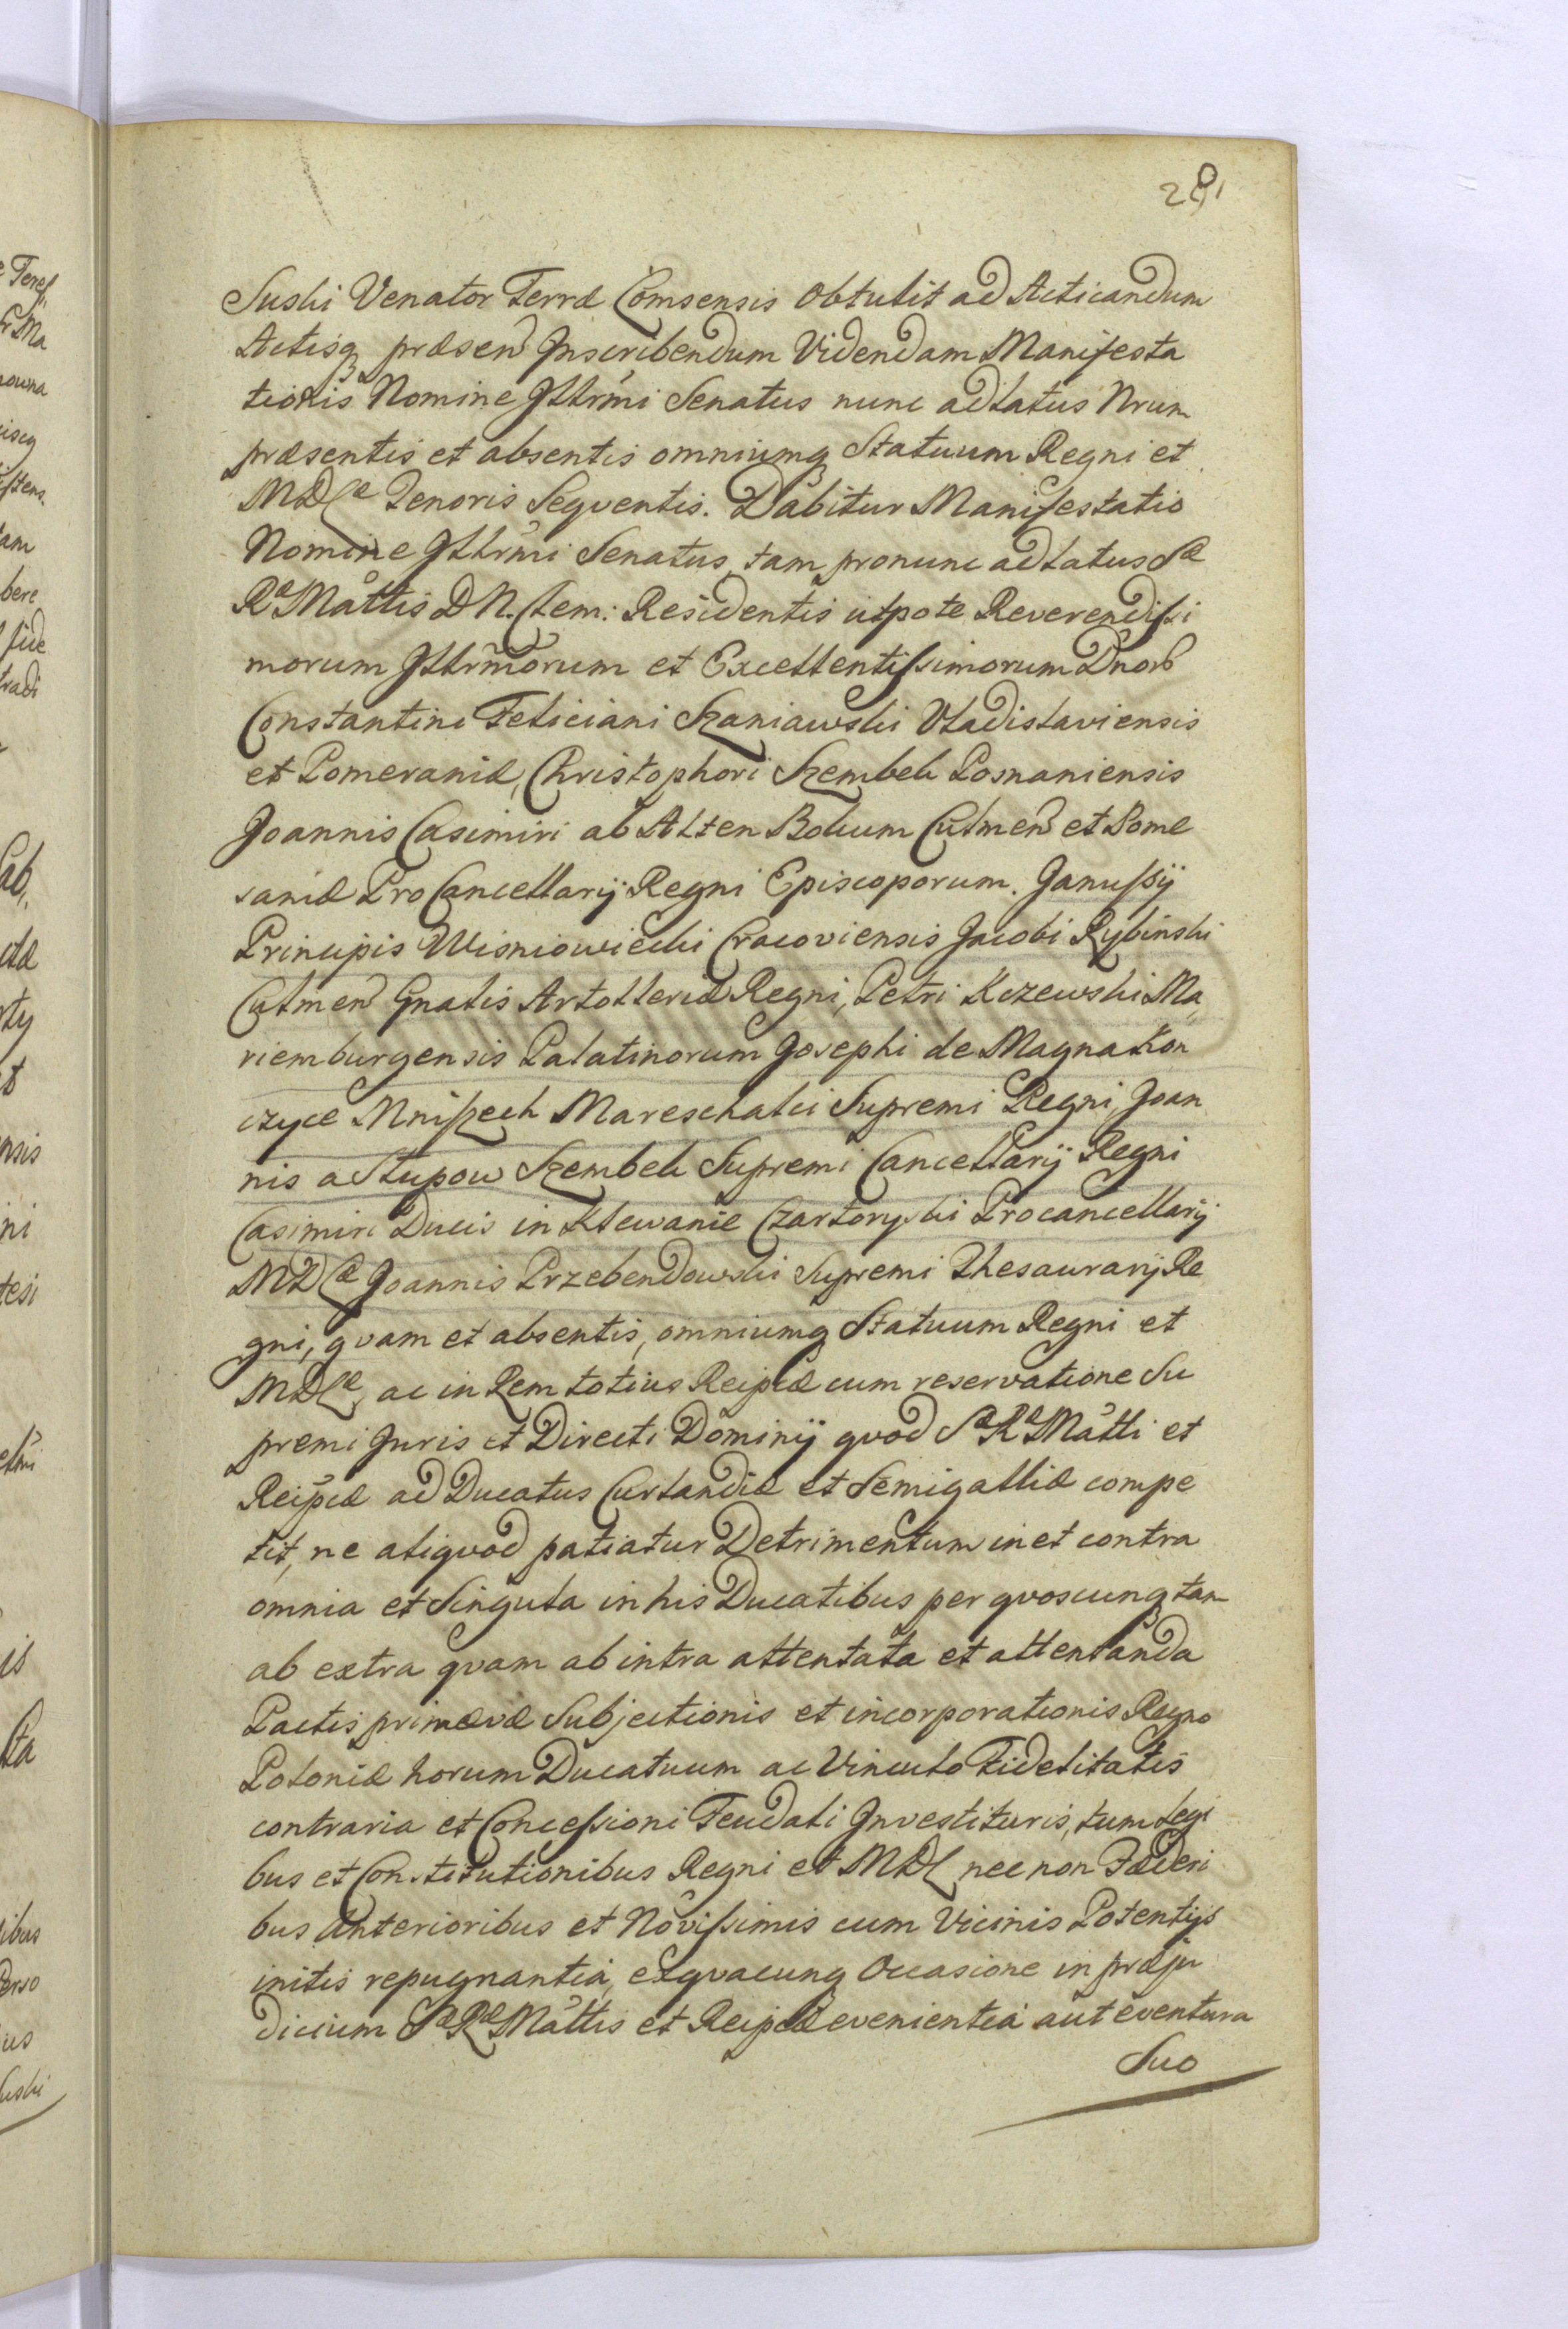 281
Suski Venator Terræ Comsensis obtulit ad Acticandum
Actisq præsen Inscribendum Videndam Manifesta
tionis Nomine Illrmi Senatus nunc ad latus Nrum
præsentis et absentis omniumq Statuum Regni et
MDLæ Tenoris Seqventis. Dabitur Manifestatio
Nomine Illrmi Senatus, tam pronunc ad latus Sæ
Ræ Mattis D N. Clem: Residentis utpote Reverendissi
morum Illrmorum et Excellentissimorum Dnorb
Constantini Feliciani Szaniawski Vladislaviensis
et Pomeraniæ, Christophori Szembek Posnaniensis
Joannis Casimiri ab Alten Bokum Culmen et Pome
saniæ Pro Cancellarij Regni Episcoporum. Janussij
Principis Wisniowiecki Cracoviensis Jacobi Rybinski
Culmen Gnalis Artolleriæ Regni, Petri Kczewski Ma
riemburgensis Palatinorum Josephi de Magna Kon
czyce Mniszech Mareschalci Supremi Regni, Joan
nis a Słupow Szembek Supremi Cancellarij Regni
Casimiri Ducis in Klewanie Czartoryski Procancellarij
MDLæ Joannis Przebendowski Supremi Thesaurarij Re
gni, qvam et absentis, omniumq Statuum Regni et
MDLæ, ac in Rem totius Reipcæ cum reservatione Su
premi Juris et Directi Dominij qvod Sæ Ræ Matti et
Reipcæ ad Ducatus Curlandiæ et Semigalliæ compe
tit, ne aliqvod patiatur Detrimentum in et contra
omnia et Singula in his Ducatibus per qvoscunq tam
ab extra qvam ab intra attentata et attentanda
Pactis primævæ Subjectionis et incorporationis Regno
Poloniæ horum Ducatuum ac Vinculo Fidelitatis
contraria et Concessioni Feudali Investituris, tum Legi
bus et Constitutionibus Regni et MDL nec non Fæderi
bus Anterioribus et Novissimis cum Vicinis Potentijs
initis repugnantia, exqvacunq Occasione in præju
dicium Sæ Ræ Mattis et Reipcæ evenientia aut eventura
Suo